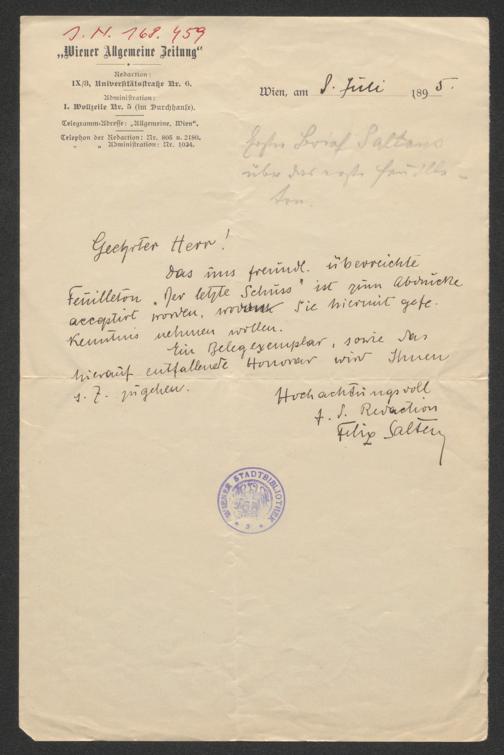 J. N. 168.459
„Wiener Allgemeine Zeitung“
Redaction:
IX/3, Universitätsstraße Nr. 6.
Administration:
I. Wollzeile Nr. 5 (im Durchhause).
Telegramm-Adresse: „Allgemeine, Wien“.
Telephon der Redaction: Nr. 805 u. 2180.
„ „ Administration: Nr. 1034.
Wien, am 8. Juli 1895.
Brief Saltens
über das erste Feuille-
ton.
Geehrter Herr!
Das uns freundl. überreichte
Feuilleton „Der letzte Schuss“ ist zum Abdrucke
acceptirt worden, wovon Sie hiermit gefl.
Kenntnis nehmen wollen.
Ein Belegexemplar, sowie das
hierauf entfallende Honorar wird Ihnen
s. Z. zugehen.
Hochachtungsvoll
f. d. Redaction
Felix Salten
WIENER STADTBIBLIOTHEK